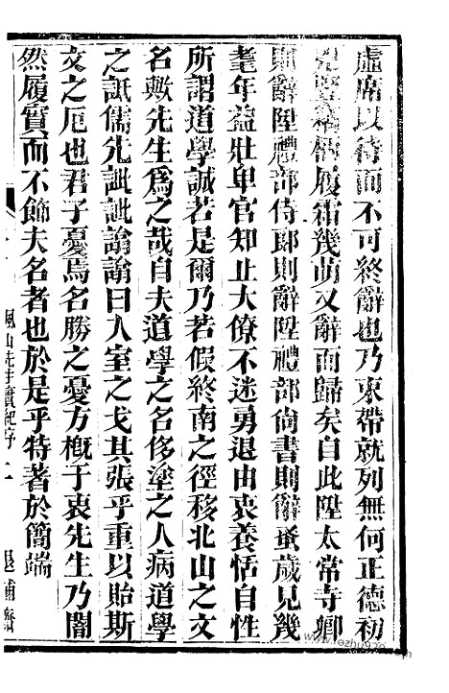 虛席以待而不可終辭也乃束帶就列無何正德初
履霜幾萌又辭而歸矣自此陞太常寺卿
則辭陞禮部侍郎則辭陞禮部尚書則辭蚤歲見幾
耄年益壯卑官知止大僚不迷勇退由衷養恬自性
所謂道學誠若是爾乃若假終南之徑移北山之文
名歟先生爲之哉自夫道學之名侈塗之人病道學
之詆儒先訿訿謚謚曰入室之戈其張乎重以貽斯
文之厄也君子憂焉名勝之憂方槪于衷先生乃闇
然履實而不飾夫名者也於是乎特著於簡端
楓山先生實紀序 二
退補齋